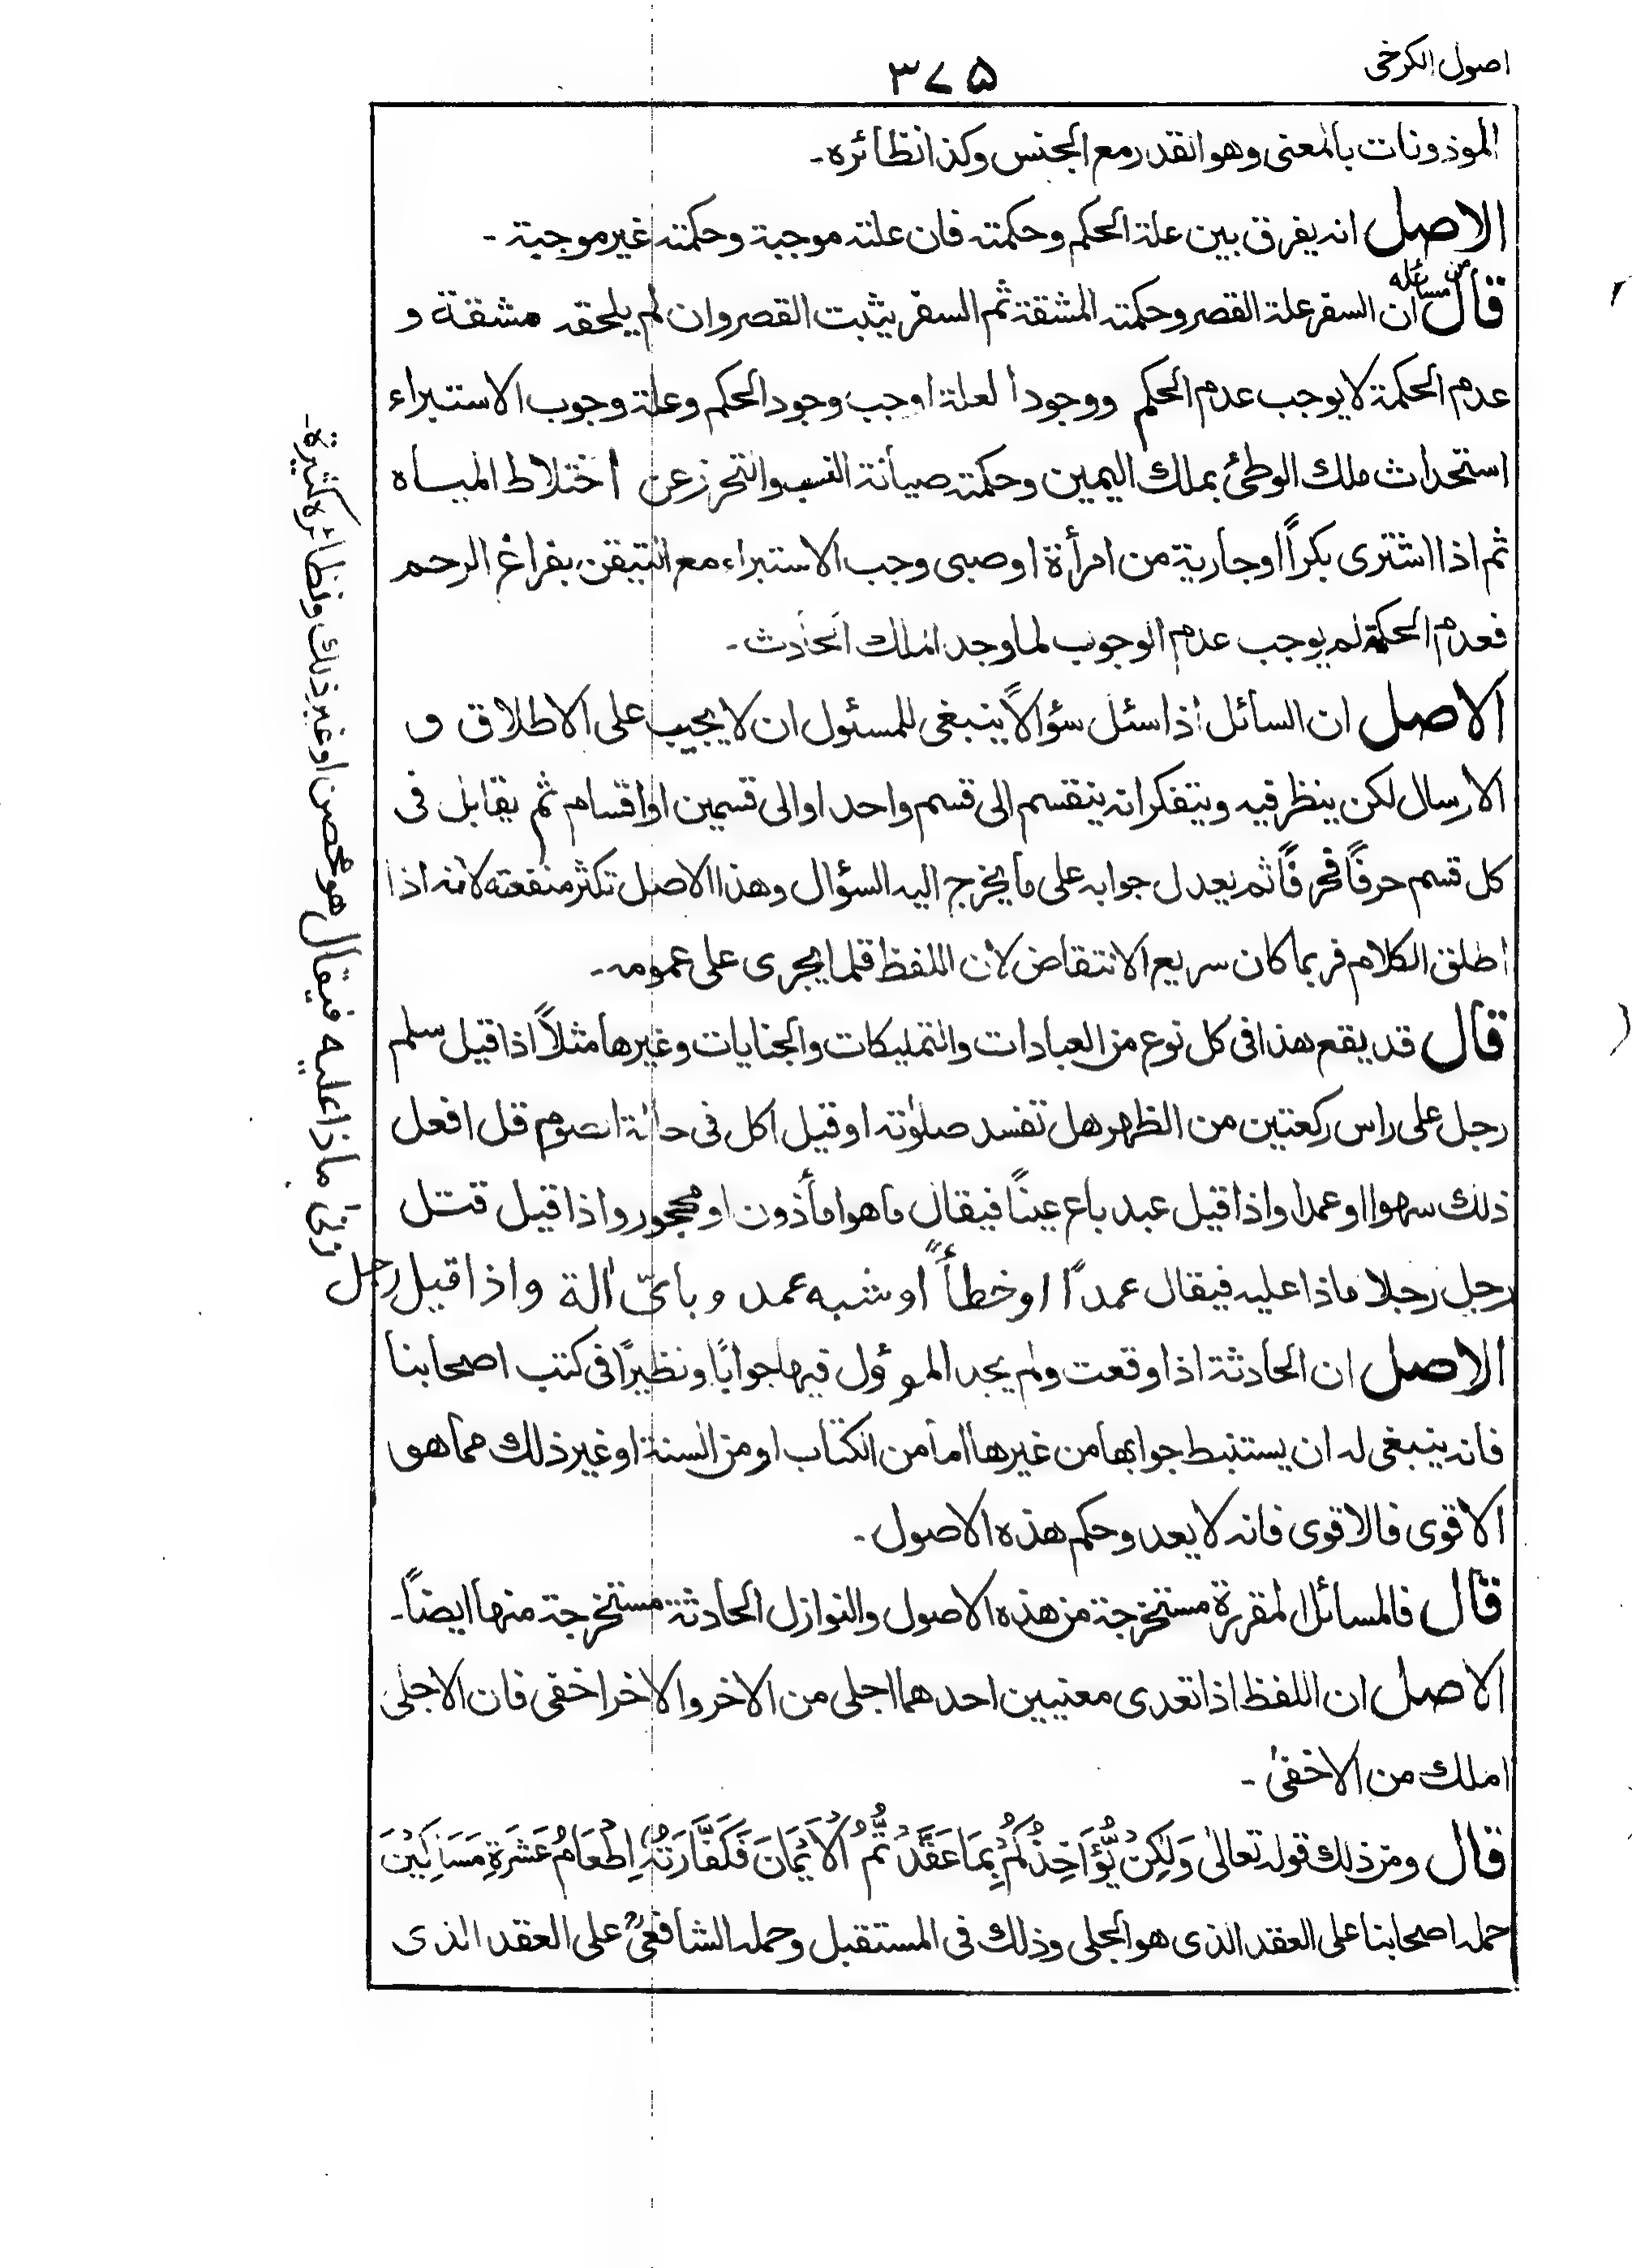 اصول الكرخى
٣٧٥
الموذونات بالمعنى وهو القدر مع الجنس وكذا نظائره۔
الاصل انه يفرق بين علة الحكم وحكمته فان علته موجبة وحكمته غير موجبة۔
قال من مسائله ان السفر علة القصر وحكمته المشقة ثم السفر يثبت القصر وان لم يلحقه مشقة و
عدم الحكمة لا يوجب عدم الحكم ووجود العلة اوجب وجود الحكم وعلة وجوب الاستبراء
استحداث ملك الوطئ بملك اليمين وحكمته صيانة النسب والتحرز عن اختلاط المياه
ثم اذا اشترى بكراً او جارية من امرأة او صبى وجب الاستبراء مع التيقن بفراغ الرحم
فعدم الحكمة لم يوجب عدم الوجوب لما وجد الملك الحادث۔
الاصل ان السائل اذا سئل سؤالاً ينبغى للمسئول ان لا يجيب على الاطلاق و
الارسال لكن ينظر فيه ويتفكر انه ينقسم الى قسم واحد او الى قسمين او اقسام ثم يقابل فى
كل قسم حرفاً فحرفاً ثم يعدل جوابه على ما يخرج اليه السؤال وهذا الاصل تكثر منفعته لانه اذا
اطلق الكلام فربما كان سريع الانتقاض لان اللفظ قلما يجرى على عمومه۔
قال قد يقع هذا فى كل نوع من العبادات والتمليكات والجنايات وغيرها مثلاً اذا قيل سلم
رجل على راس ركعتين من الظهر هل تفسد صلوٰته او قيل اكل فى حالة الصوم قل افعل
ذلك سهوا او عمدا واذا قيل عبد باع عيناً فيقال ما هو امأذون او محجور واذا قيل قتل
رجل رجلا ماذا عليه فيقال عمداً او خطأً او شبه عمد وباىّ اٰلة واذا قيل رجل
زنىٰ ماذا عليه فيقال هو محصن او غير ذلك ونظائره كثيرة۔
الاصل ان الحادثة اذا وقعت ولم يجد المؤول فيها جوابًا ونظيرًا فى كتب اصحابنا
فانه ينبغى له ان يستنبط جوابها من غيرها اما من الكتاب او من السنة او غير ذلك مما هو
الاقوى فالاقوى فانه لا يعدو حكم هذه الاصول۔
قال فالمسائل المقررة مستخرجة من هذه الاصول والنوازل الحادثة مستخرجة منها ايضاً۔
الاصل ان اللفظ اذا تعدى معنيين احدهما اجلى من الاخر والاخر اخفى فان الاجلى
املك من الاخفىٰ۔
قال ومن ذلك قوله تعالىٰ وَلٰكِنْ يُّؤَاخِذُكُمْ بِمَا عَقَّدْتُّمُ الْاَيْمَانَ فَكَفَّارَتُهٗ اِطْعَامُ عَشَرَةِ مَسَاكِيْنَ
حمله اصحابنا على العقد الذى هو الجلى وذلك فى المستقبل وحمله الشافعىؒ على العقد الذى